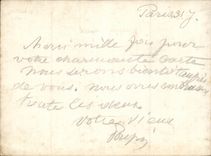 Paris 31 J.
Merci mille fois pour
votre charmante carte
nous serons bientot auprès
de vous. nous vous embrassons
toutes les deux.
Votre vieux